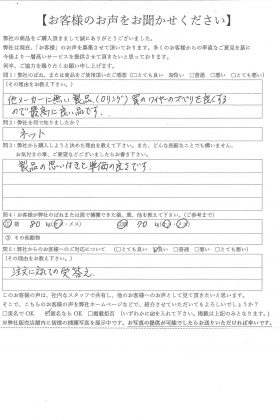 【お客様のお声をお聞かせください】
弊社の商品をご購入頂きまして誠にありがとうございました。
弊社は現在、「お客様」のお声を募集させて頂いております。多くのお客様からの率直なご意見を基に
今後より一層高いサービスを提供させて頂きたいと思っております。
何卒、ご協力を賜りたくお願い申し上げます。
問1：弊社のばね、または商品をご使用頂いたご感想 （□とても良い ☑良い □普通 □悪い □とても悪い）
（その理由をお教え下さい。）
他メーカーに無い製品、(Oリング) 質の ワイヤーのスベリを良くする
ので最高に良い品です。
問2：弊社を何で知りましたか？
ネット
問3：弊社から購入しようと決めた理由を教えて下さい。また、どんな些細なことでも構いません、
お気付きの事、ご要望などございましたらお書き下さい。
製品の思い付きと単価の良さです.
問4：お客様が弊社のばねまたは罠で捕獲できた猪、鹿、他を教えて下さい。（ご参考まで）
① 猪 80 kg(オス・メス)
70 kg(オス・メス)
③ その他動物
問5：弊社からのお客様へのご対応について （□とても良い ☑良い □普通 □悪い □とても悪い）
（その理由をお教え下さい。）
注文に対しての受答え.
このお客様の声は、社内なスタッフで共有し、他のお客様への声として見て頂きたいと思います。
そこで、こちらのお客様の声を弊社ホームページなどで、紹介させていただいてもよろしいでしょうか？
□実名でOK ☑匿名ならOK □掲載拒否 （いずれかに☑を入れて下さい。掲載は上記のみとなります。）
※弊社販売店舗内に皆様の捕獲写真を展示中です。お写真の提供が可能でしたらお送りいただければ幸いです。